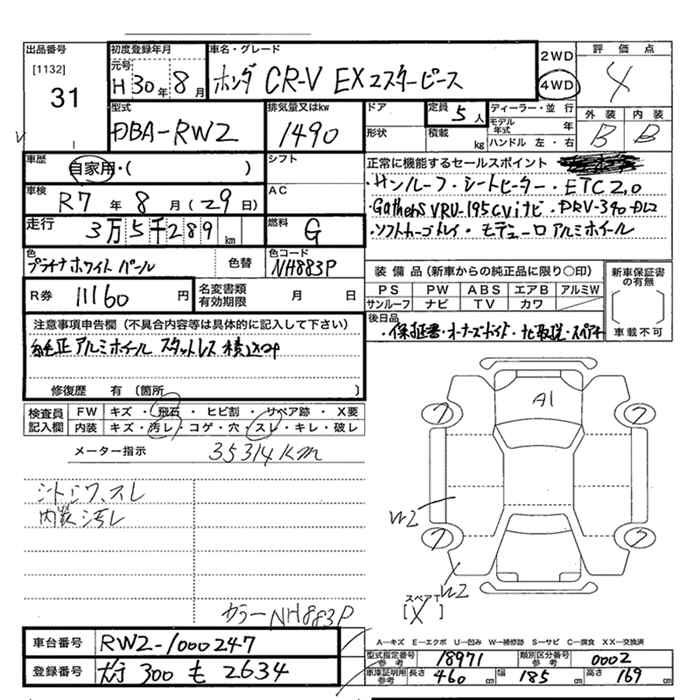 出品番号
[1132]
31
初度登録年月
元号
H 30 年 8 月
車名・グレード
ホンダ CR-V EX マスターピース
2WD
4WD
評価点
4
型式
DBA-RW2
排気量又はkw
1490
ドア
形状
定員 5 人
積載 kg
ディーラー・並行
モデル年式 年
ハンドル 左・右
外装 内装
B B
車歴
自家用・( )
シフト
AC
車検
R7 年 8 月 (29 日)
走行
3万5千289 km
燃料 G
正常に機能するセールスポイント
・サンルーフ・シートヒーター・ETC2.0
・Gathers VRU-195CViナビ・DRV-
・ソフトカーゴトレイ・モデューロ アルミホイール
色
プラチナホワイトパール
色替
色コード
NH883P
R券 11160 円
名変書類
有効期限 月 日
装備品 (新車からの純正品に限り○印)
PS PW ABS エアB アルミW
サンルーフ ナビ TV カワ
新車保証書の有無
[ ]
車載不可
後日品
・保証書・オーナーズガイド・ナビ取説・スペアキー
注意事項申告欄 (不具合内容等は具体的に記入して下さい)
純正アルミホイール スタットレス 積込中
修復歴 有 (箇所 )
検査員記入欄
FW キズ・飛石・ヒビ割・リペア跡・X要
内装 キズ・汚レ・コゲ・穴・スレ・キレ・破レ
メーター指示 35314km
シートシワ、スレ
内装汚レ
カラーNH883P
A1
W2
W2
スペアT
[X]
A―キズ E―エクボ U―凹み W―補修跡 S―サビ C―腐食 XX―交換済
車台番号 RW2-1000247
登録番号 300 も 2634
型式指定番号 参考 18971
類別区分番号 参考 0002
車庫証明用 参考 長さ 460 cm 幅 185 cm 高さ 169 cm